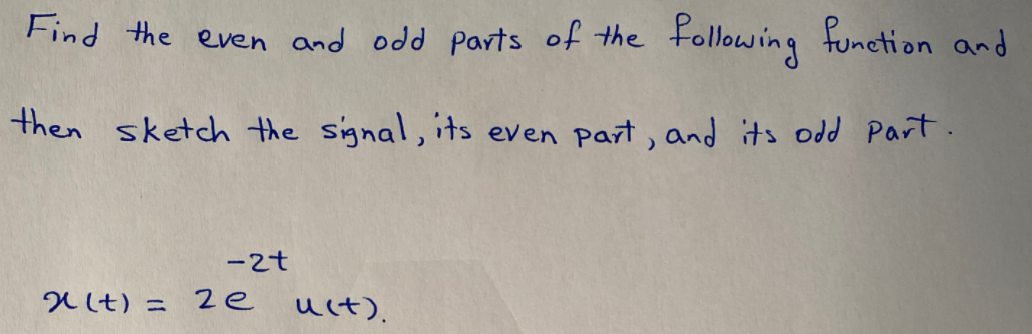 Find the even and odd parts of the following function and
then sketch the signal, its even part, and its odd part.
x(t) = 2e^{-2t} u(t).